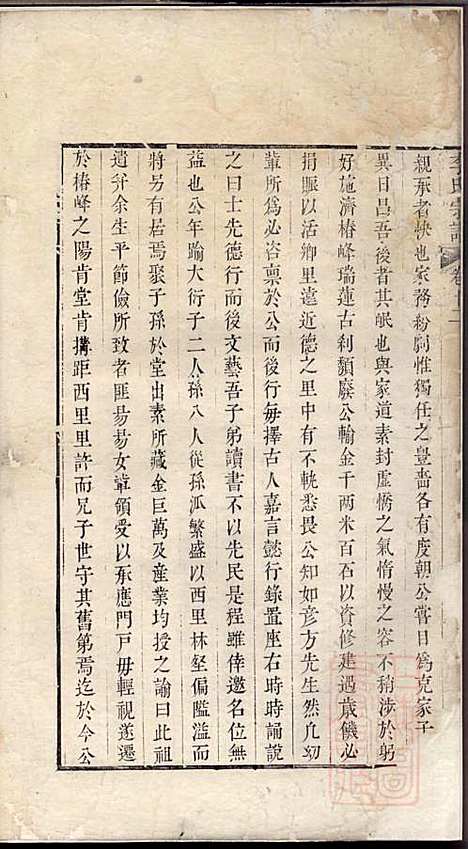 李氏宗譜
親承者缺也家務紛劇惟獨任之豐嗇各有度朝公嘗目為克家子
異日昌吾後者其岷也與家道素封虛憍之氣惰慢之容不稍涉於躬
好施濟椿峰瑞蓮古刹頹廢公輸金千兩米百石以資修建遇歲饑必
捐賑以活鄉里遠近德之里中有不軌悉畏公知如彥方先生然凢切
輩所為必咨禀於公而後行每擇古人嘉言懿行錄置座右時時誦說
之曰士先德行而後文藝吾子弟讀書不以先民是程雖倖邀名位無
益也公年踰大衍子二人孫八人從孫派繁盛以西里林壑偏隘溢而
將另有居焉聚子孫於堂出素所藏金巨萬及產業均授之諭曰此祖
遺幷余生平節儉所致者匪易易女輩領受以承應門戶毋輕視遂遷
於椿峰之陽肯堂肯搆距西里里許而兄子世守其舊第焉迄於今公